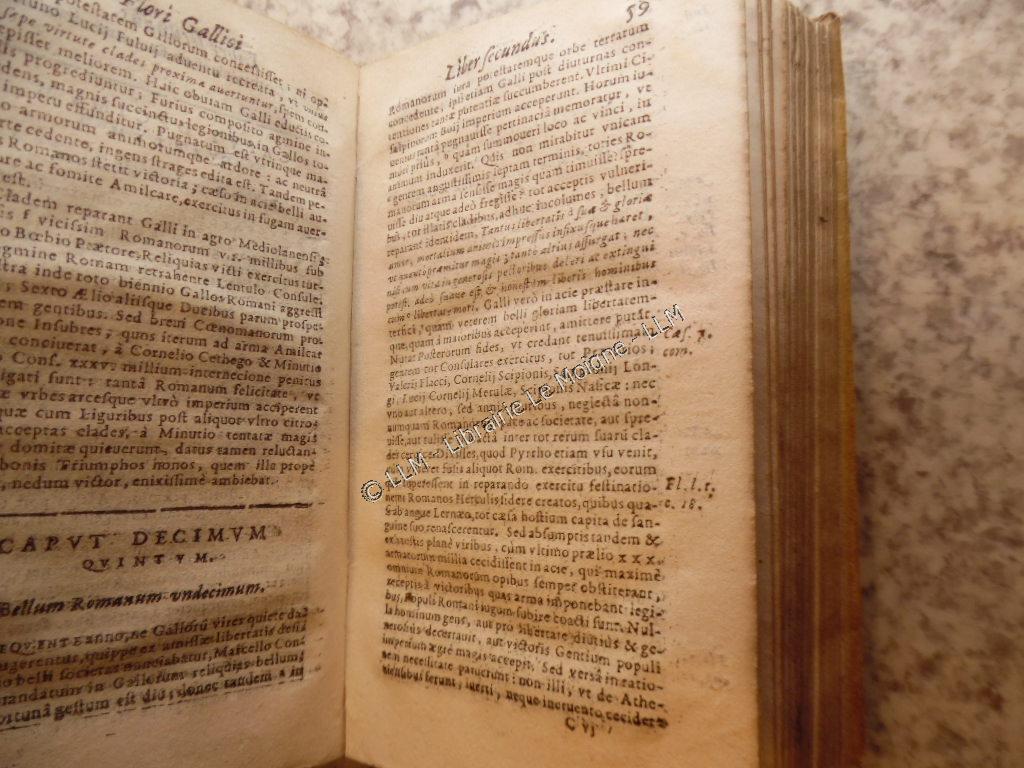 Flori Gallici
potestatem Gallorum concessisset: ni op-
Lucij Fuluij aduentu recreata; vt
sæpe virtute clades proxima auertuntur, spem
cepisset meliorem. Huic obuiam Galli educūt co-
progrediuntur; Furius composito agmine in-
dens, magnis succinctus legionibus, in Gallos to-
imperu effunditur. Pugnatum est vtrinque ma-
armorum animorumque ardore: ac neutrâ
parte cedente, ingens strages edita est. Tandem pe-
Romanos stetit victoria; cæso in acie belli au-
ac fomite Amilcare, exercitus in fugam auer-
est.
Cladem reparant Galli in agro Mediolanensi;
vicissim Romanorum v1. millibus sub
Bœbio Prætore. Reliquias victi exercitus tur-
agmine Romam retrahente Lentulo Consule.
inde toto biennio Gallos Romani aggressi
Sexto Ælio aliisque Ducibus parum prospe-
gentibus. Sed breui Cœnomanorum pro-
Insubres; quos iterum ad arma Amilcar
conciuerat, à Cornelio Cethego & Minutio
Conf. xxxv. millium internecione penitus
fligati sunt: tantâ Romanum felicitate, vt
vrbes arcesque vltrò imperium acciperent
quæ cum Liguribus post aliquot vltro citro-
acceptas clades, à Minutio tentatæ magis
domitæ quieuerunt, datus tamen reluctan-
bonis Triumphos honos, quem illa propè
, nedum victor, enixissimè ambiebat.
CAPVT DECIMVM
QVINTVM.
Bellum Romanum vndecimum.
SEQVENTE anno, ne Gallorū vires quiete da
augerentur, quippe ex amissæ libertatis desi
belli societas nunciabatur, Marcello Con
mandatum in Gallorum reliquias bellum;
fortunâ gestum est diu; donec tandem a in
59
Liber secundus.
Romanorum iura potestatemque orbe terrarum
concedente, ipsi etiam Galli post diuturnas con-
tentiones tantæ potentiæ succumberent. Vltimi Ci-
salpinorum Boij imperium acceperunt. Horum iu-
uentus tantâ pugnauisse pertinaciâ memoratur, vt
mori prius, quàm summoueri loco ac vinci, in
animum induxerit. Quis non mirabitur vnicam
gentem angustissimis septam terminis, toties Ro-
manorum arma sensisse magis quam timuisse? spre-
uisse diu atque adeò fregisse? tot acceptis vulneri-
bus, tot illatis cladibus, adhuc incolumes, bellum
reparant identidem. Tantus libertatis à suæ & gloriæ
amor, mortalium animis impressus infixusque hæret,
vt quanto premitur magis; tanto altius assurgat; nec
nisi cum vita in generosis pectoribus deleri ac extingui
potest. adeò suaue est & honestum liberis hominibus
cum libertate mori. Galli verò in acie præstare in-
terfici, quam veterem belli gloriam libertatem-
que, quam à maioribus acceperint, amittere putāt.
Nutat Posterorum fides, vt credant tenuissimam
gentem tot Consulares exercitus, tot
Valerij Flacci, Cornelij Scipionis, Lon-
gi, Lucij Cornelij Merulæ, Scipionis Nasicæ; nec
vno aut altero, sed annis pluribus, neglectâ non-
numquam Romanorum pace ac societate, aut spre-
uisse, aut inter tot rerum suarū cla-
des quod Pyrrho etiam vsu venit,
fusis aliquot Rom. exercitibus, eorum
in reparando exercitu festinatio-
nem Romanos Herculis sidere creatos, quibus qua-
si ab angue Lernæo, tot cæsa hostium capita de san-
guine suo renascerentur. Sed absumptis tandem &
exhaustis planè viribus, cùm vltimo prælio xxx.
armatorum millia cecidissent in acie, qui maximè
omnium Romanorum opibus semper obstiterant,
receptis à victoribus quas arma imponebant legi-
bus, Populi Romani iugum subire coacti sunt. Nul-
la hominum gens, aut pro libertate diutius & ge-
nerosiùs decertauit, aut victoris Gentium populi
imperium ægrè magis accepit. Sed versâ in ratio-
nem necessitate paruerunt: non illi, vt de Athe-
niensibus ferunt, inerti, neque incruento cecidere
C vj
Cæs. 7.
com.
Fl. l. 1.
c. 18.
© LLM - Librairie Le Moione - LLM